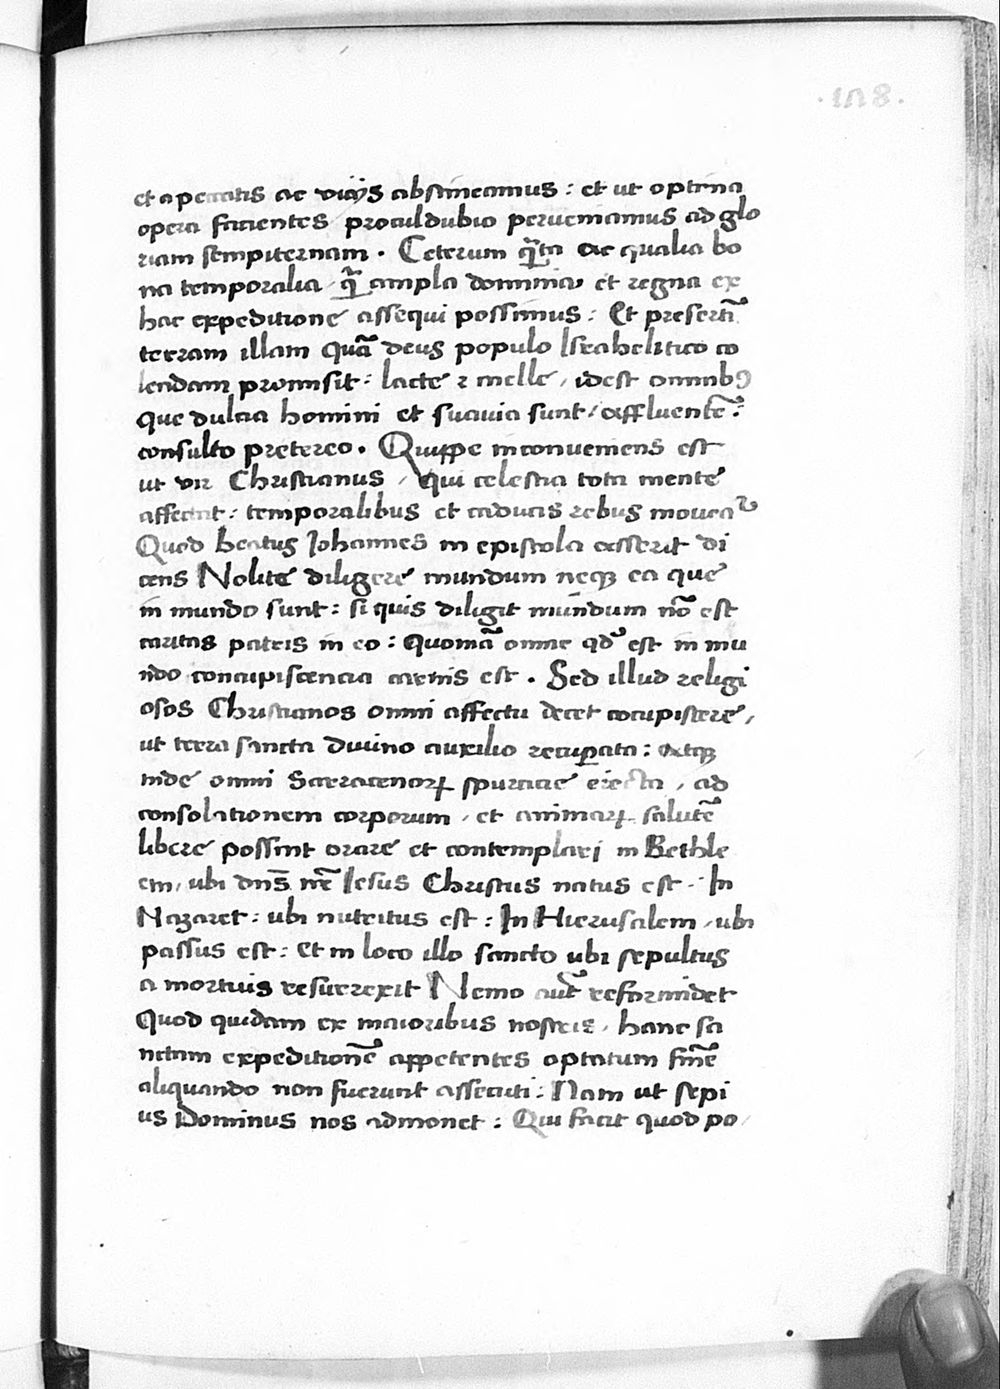 et a peccatis ac vicijs abstineamus : et ut optima
opera facientes proculdubio perveniamus ad glo
riam sempiternam . Ceterum q̃ta ac qualia bo
na temporalia / q̃ ampla dominia et regna ex
hac expeditione assequi possimus : Et presertĩ
terram illam quã deus populo Israhelitico co
lendam promisit : lacte ⁊ melle / idest omnibꝰ
que dulcia homini et suavia sunt / affluentẽ :
consulto pretereo . Quippe inconveniens est
ut vir Christianus / qui celestia tota mente
affectat : temporalibus et caducis rebus moveat̃
Quod beatus Johannes in epistola asserit di
cens Nolite diligere mundum neqꝫ ea que
in mundo sunt : si quis diligit mundum nõ est
caritas patris in eo : Quoniã omne qđ est in mu
ndo concupiscencia carnis est . Sed illud religi
osos Christianos omni affectu decet cocupiscere /
ut terra sancta divino auxilio recuꝑata : atqꝫ
inde omni Sarracenoꝝ spurcicie eiecta / ad
consolationem corporum / et animaꝝ salutẽ
libere possint orare et contemplari in Bethle
em / ubi dñs nr̃ Iesus Christus natus est . In
Nazaret : ubi nutritus est : In Hierusalem / ubi
passus est : et in loco illo sancto ubi sepultus
a mortuis resurrexit Nemo aut̃ reformidet
Quod quidam ex maioribus nostris / hanc sa
nctam expeditionẽ appetentes optatum finẽ
aliquando non fuerunt assecuti : Nam ut sepi
us Dominus nos admonet : Qui facit quod po